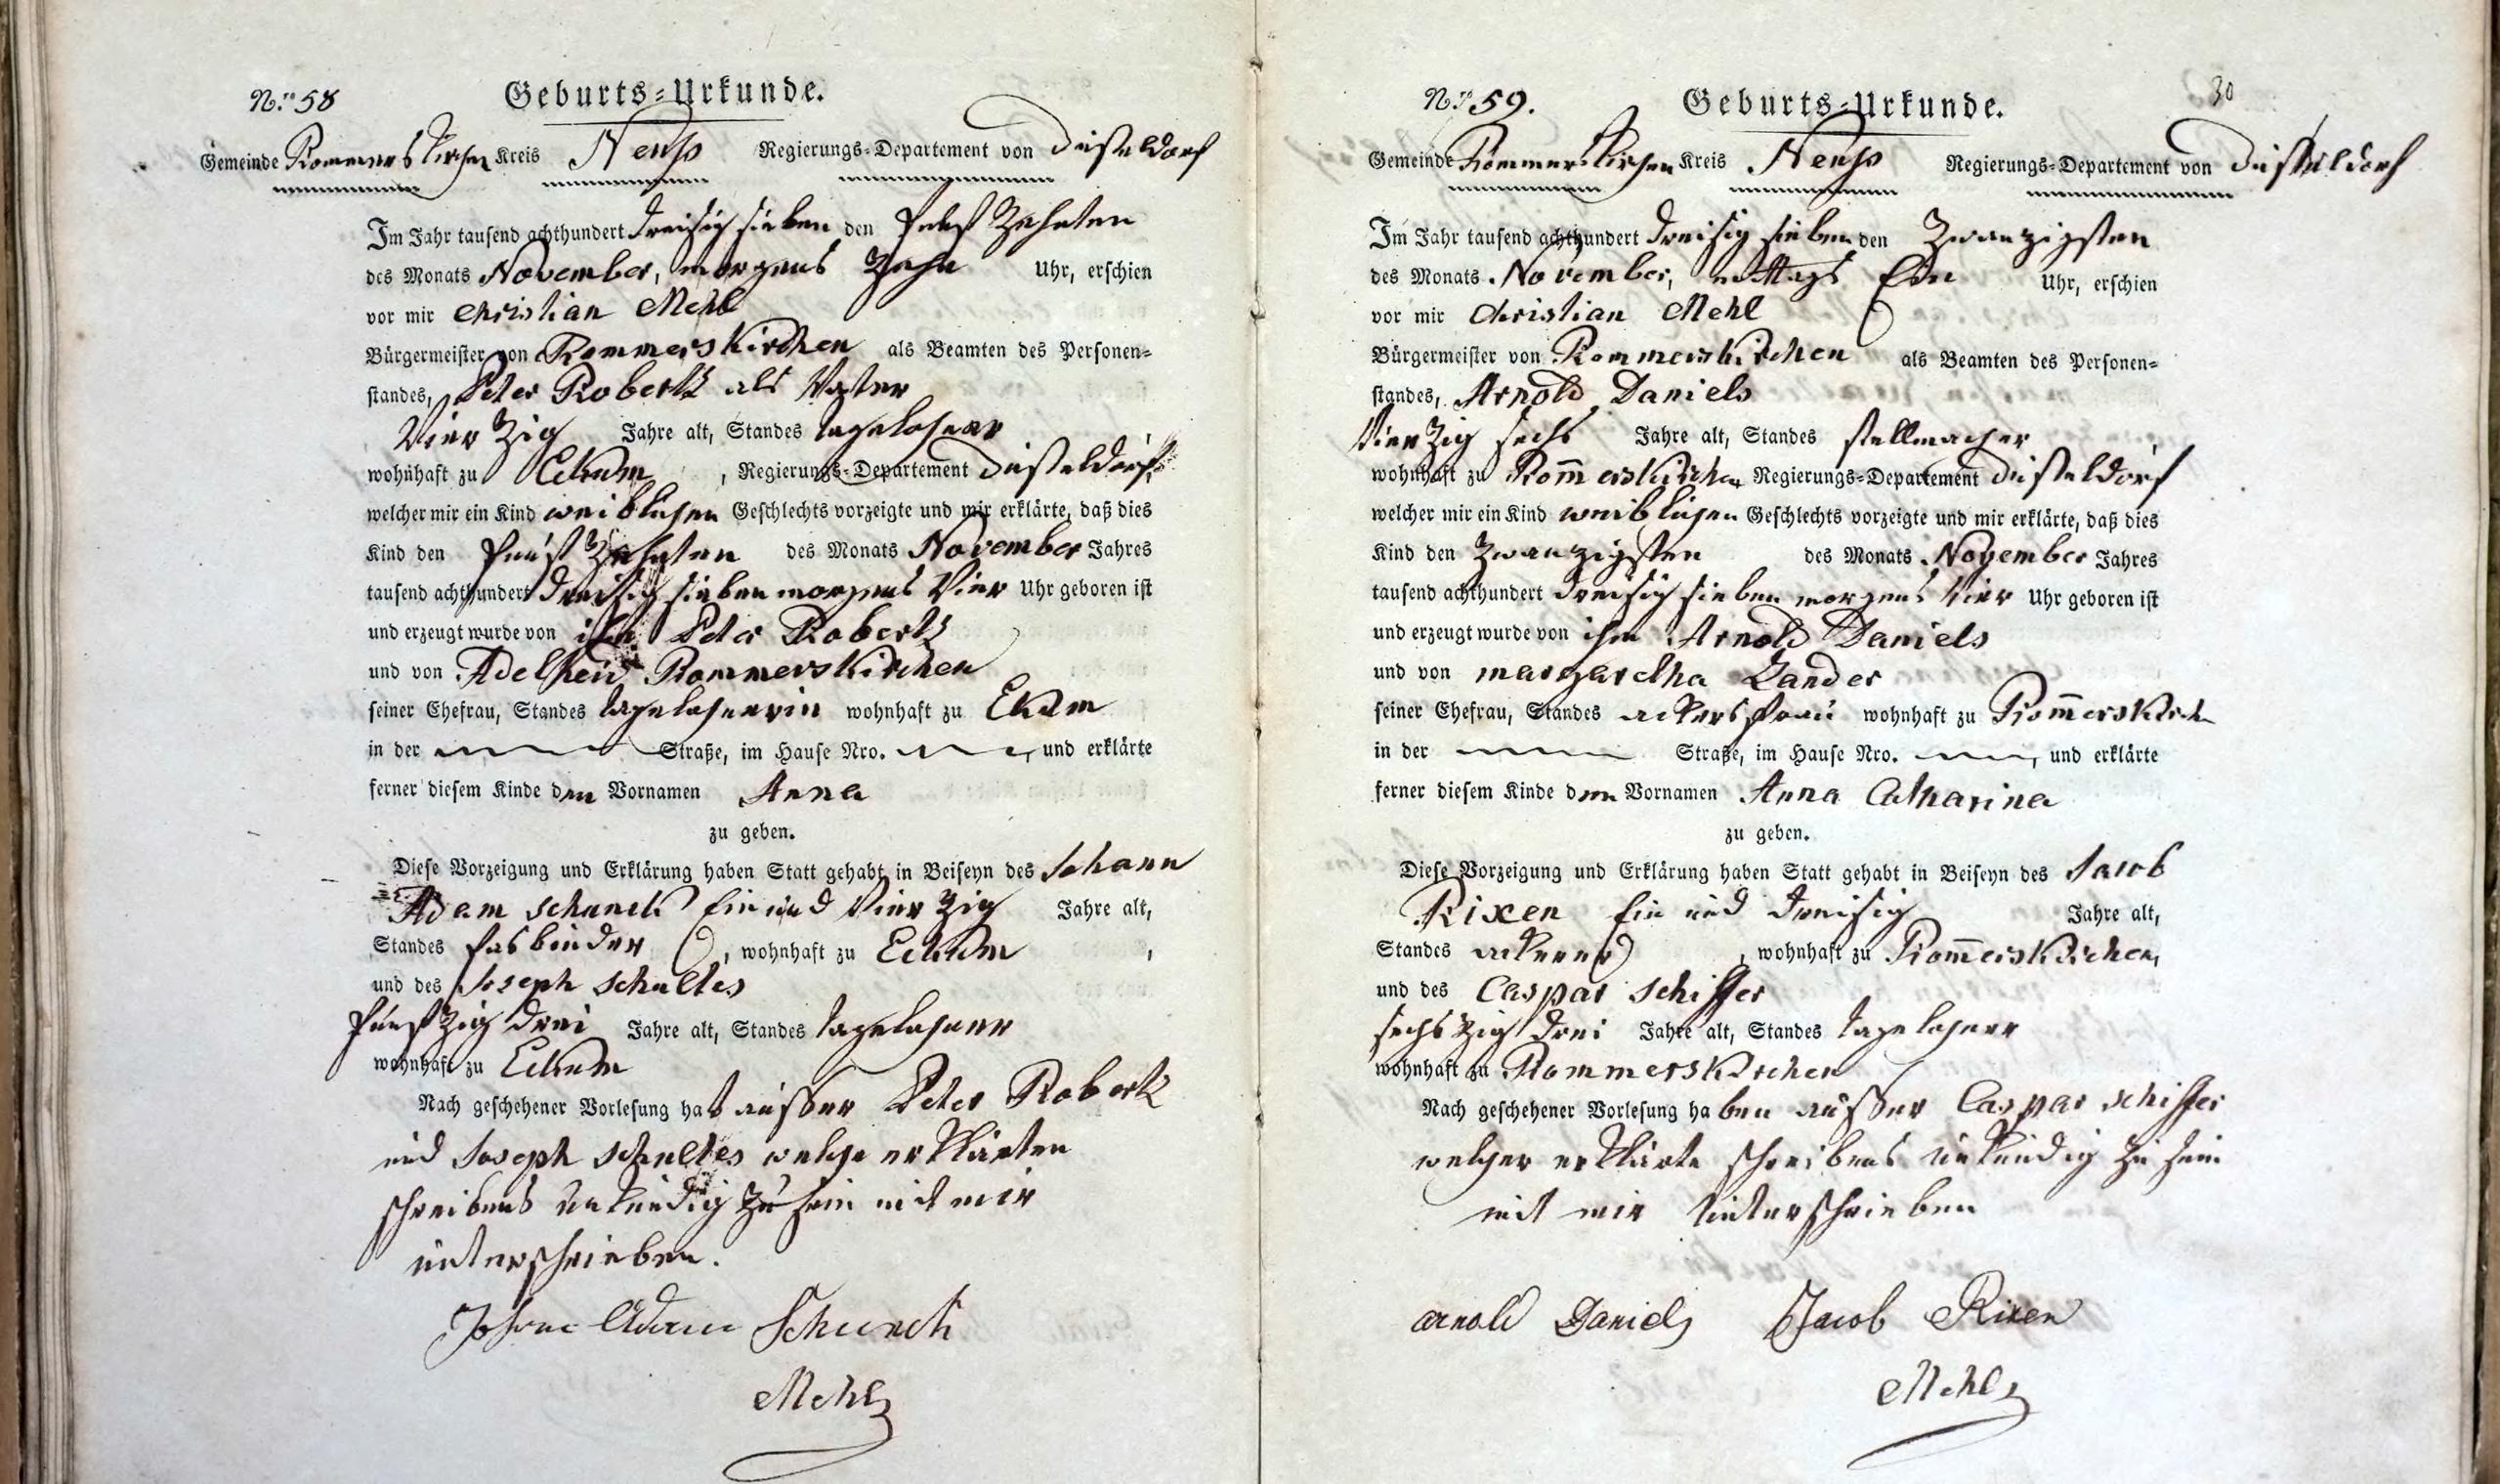 No. 58
Geburts-Urkunde.
Gemeinde Rommerskirchen Kreis Neuss Regierungs-Departement von Düsseldorf
Im Jahr tausend achthundert dreisig sieben den funf Zehnten
des Monats November, morgens Zehn Uhr, erschien
vor mir Christian Mehl
Bürgermeister von Rommerskirchen als Beamten des Personen-
standes, Peter Robertz als Vater
Vier Zig Jahre alt, Standes tagelohner
wohnhaft zu Eckum, Regierungs-Departement Düsseldorf,
welcher mir ein Kind weiblichen Geschlechts vorzeigte und mir erklärte, daß dies
Kind den funf Zehnten des Monats November Jahres
tausend achthundert dreisig sieben morgens Vier Uhr geboren ist
und erzeugt wurde von ihm Peter Robertz
und von Adelheid Rommerskirchen
seiner Ehefrau, Standes tagelohnerin wohnhaft zu Ekum
in der Straße, im Hause Nro. , und erklärte
ferner diesem Kinde den Vornamen Anna
zu geben.
Diese Vorzeigung und Erklärung haben Statt gehabt in Beiseyn des Johann
Adam Schunck Ein und Vier Zig Jahre alt,
Standes fasbinder, wohnhaft zu Eckum,
und des Joseph Schultes
funf Zig drei Jahre alt, Standes tagelohner
wohnhaft zu Eckum
Nach geschehener Vorlesung hat ausser Peter Robertz
und Joseph Schultes welche erklärten
schreibens unkundig zu sein mit mir
unterschrieben.
Johann Adam Schunck
Mehl
30
No. 59.
Geburts-Urkunde.
Gemeinde Rommerskirchen Kreis Neuss Regierungs-Departement von Düsseldorf
Im Jahr tausend achthundert dreisig sieben den Zwanzigsten
des Monats November, mittags Ein Uhr, erschien
vor mir Christian Mehl
Bürgermeister von Rommerskirchen als Beamten des Personen-
standes, Arnold Daniels
Vier Zig sechs Jahre alt, Standes stellmacher
wohnhaft zu Rom̅erskirchen Regierungs-Departement Düsseldorf
welcher mir ein Kind weiblichen Geschlechts vorzeigte und mir erklärte, daß dies
Kind den Zwanzigsten des Monats November Jahres
tausend achthundert dreisig sieben morgens Vier Uhr geboren ist
und erzeugt wurde von ihm Arnold Daniels
und von margaretha Zander
seiner Ehefrau, Standes ackersfrau wohnhaft zu Rom̅erskirchen
in der Straße, im Hause Nro. , und erklärte
ferner diesem Kinde den Vornamen Anna Catharina
zu geben.
Diese Vorzeigung und Erklärung haben Statt gehabt in Beiseyn des Jacob
Rixen Ein und dreisig Jahre alt,
Standes ackerer, wohnhaft zu Rom̅erskirchen,
und des Caspar Schiffer
sechs Zig drei Jahre alt, Standes tagelohner
wohnhaft zu Rommerskirchen
Nach geschehener Vorlesung haben ausser Caspar Schiffer
welcher erklärte schreibens unkundig zu sein
mit mir unterschrieben
Arnold Daniels Jacob Rixen
Mehl